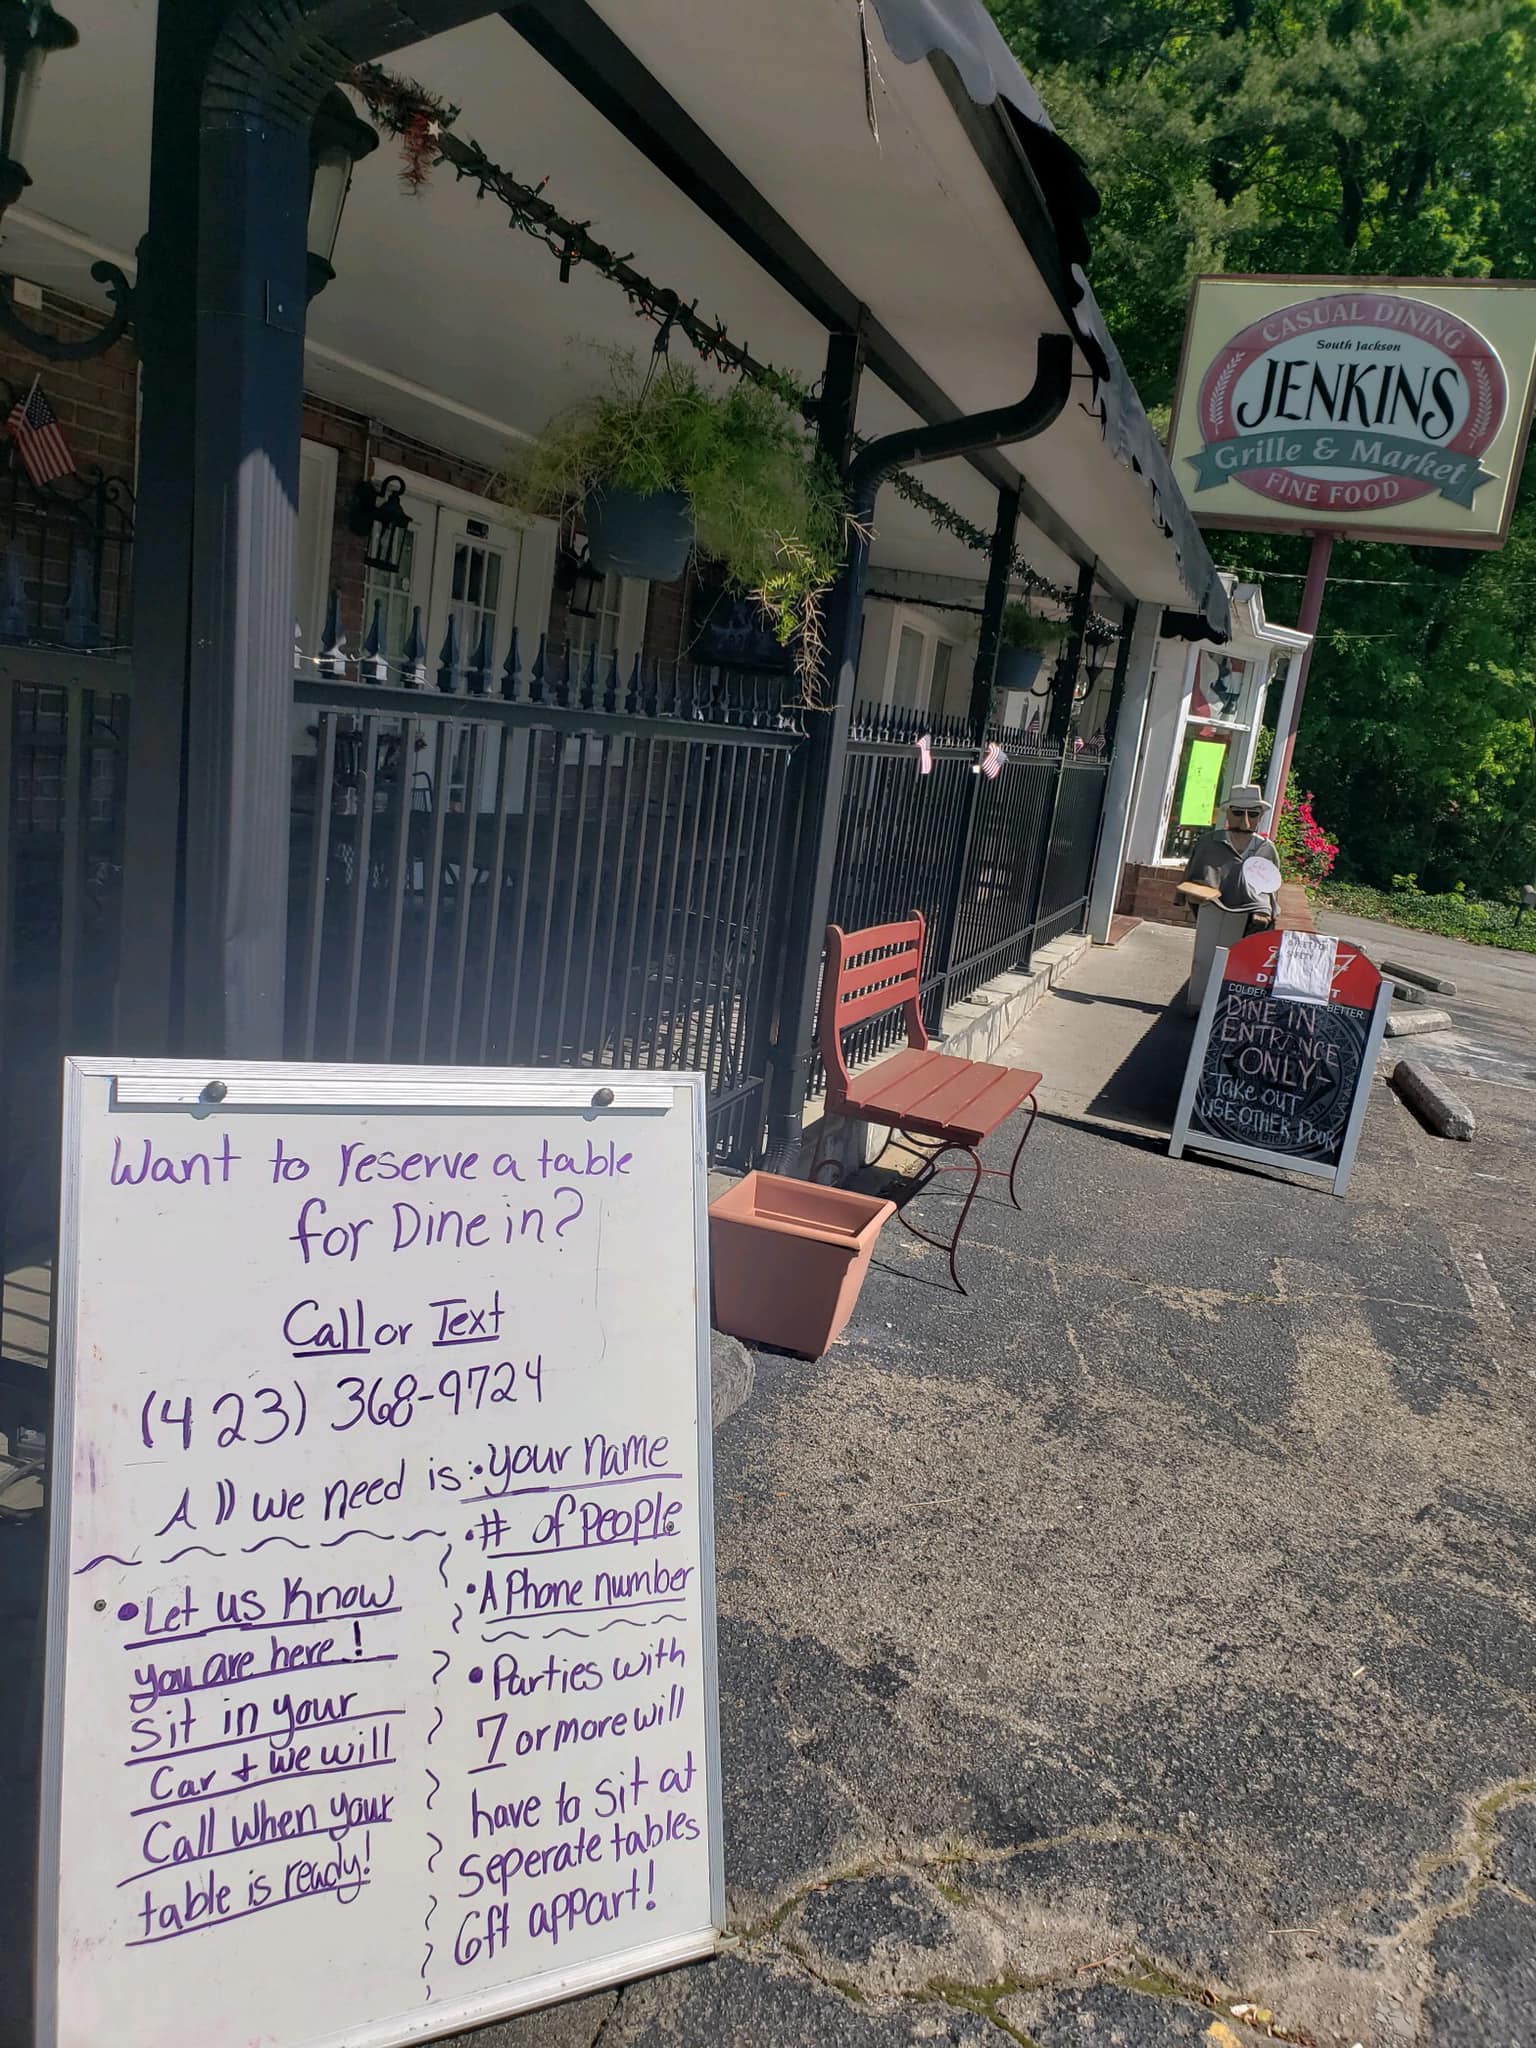 CASUAL DINING
South Jackson
JENKINS
Grille & Market
FINE FOOD
COLDER BETTER.
DINE IN
ENTRANCE
-ONLY-
Take out
USE OTHER DOOR
Want to reserve a table
for Dine in?
Call or Text
(423) 368-9724
All we need is: • your name
• # of people
• A Phone number
• Let us Know
you are here!
Sit in your
Car + we will
Call when your
table is ready!
• Parties with
7 or more will
have to sit at
seperate tables
6ft appart!